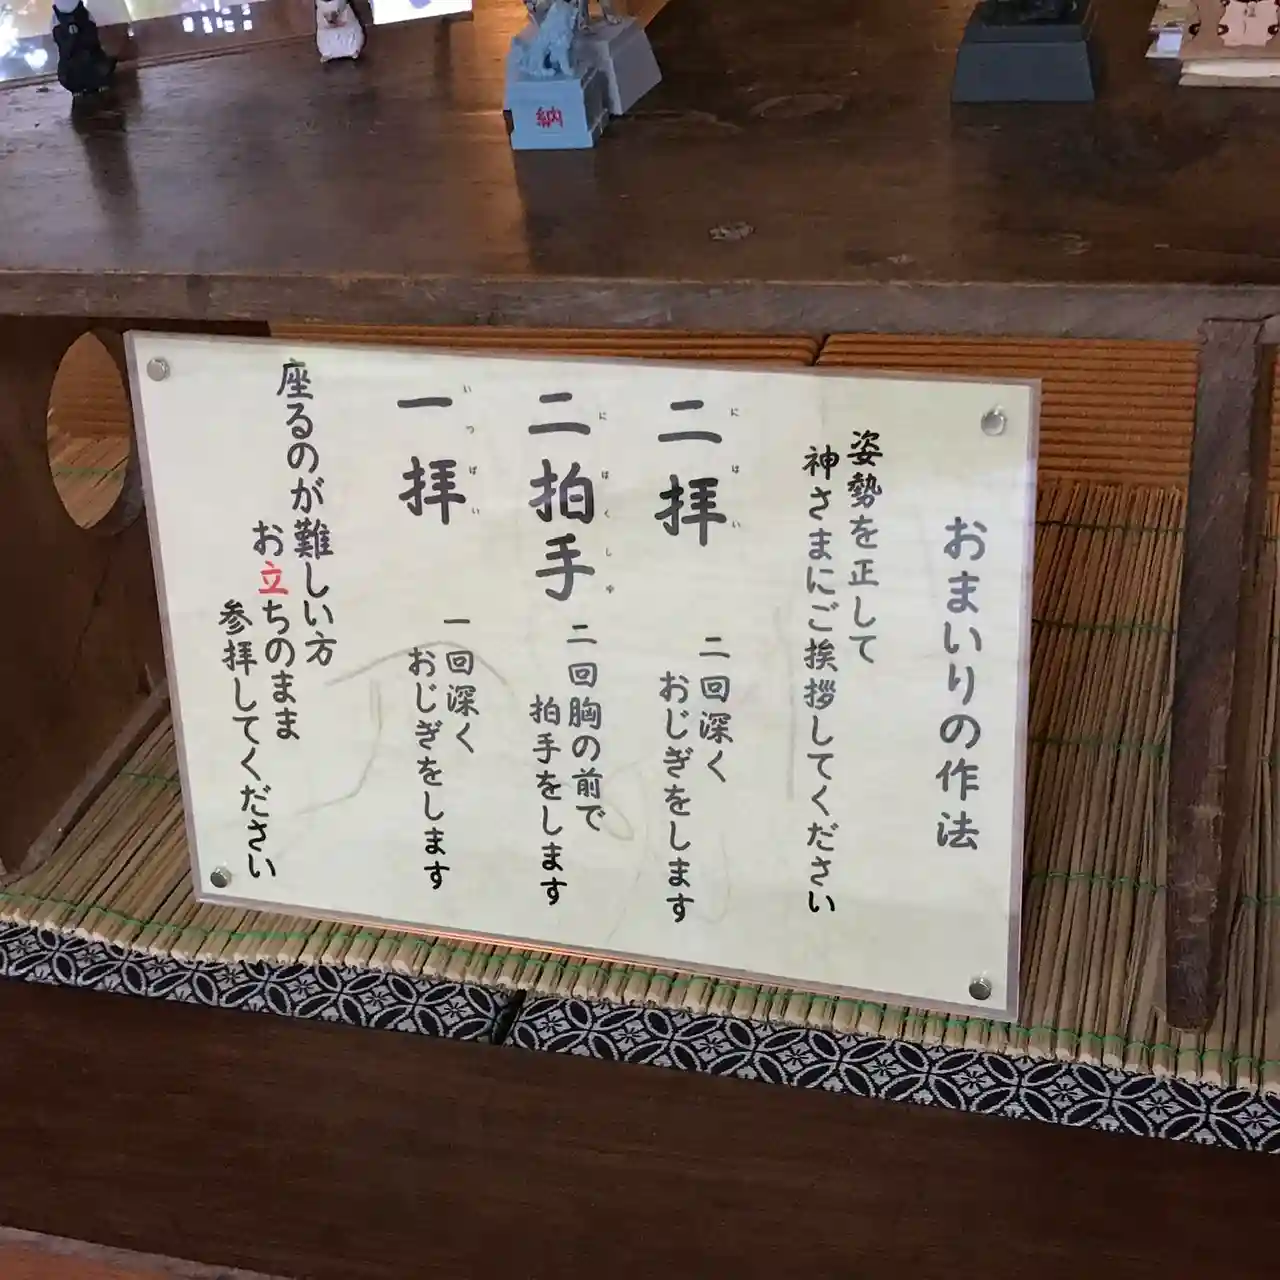 おまいりの作法
姿勢を正して
神さまにご挨拶してください
二拝
にはい
二回深く
おじぎをします
二拍手
にはくしゅ
二回胸の前で
拍手をします
一拝
いっぱい
一回深く
おじぎをします
座るのが難しい方
お立ちのまま
参拝してください
納